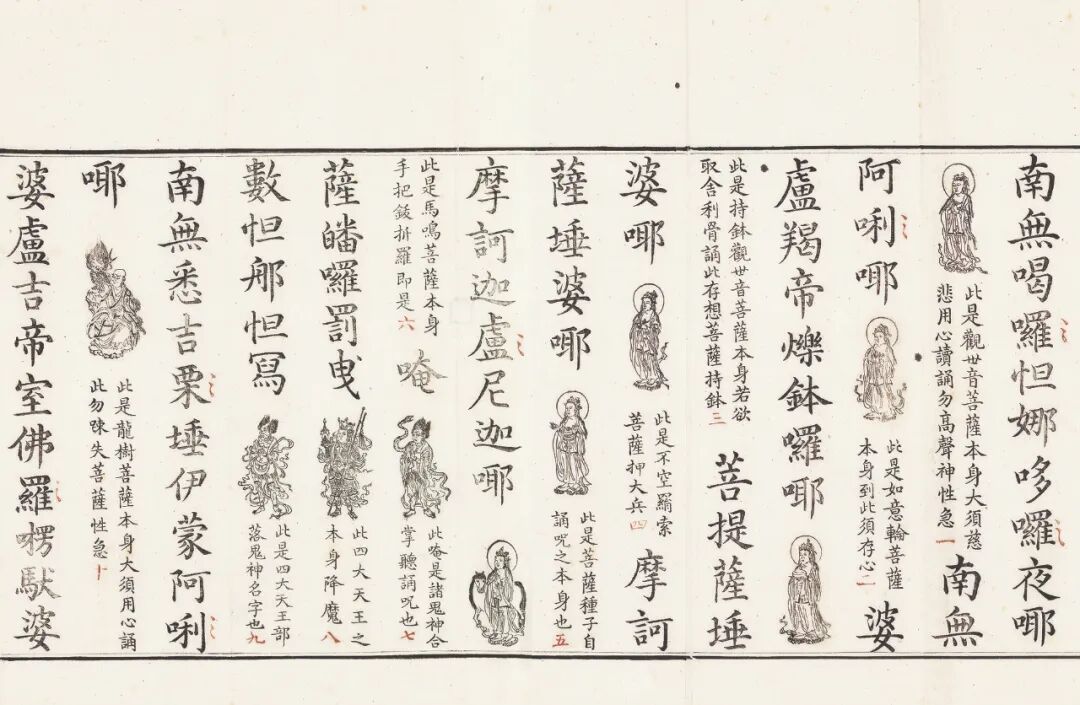 南無喝囉怛娜哆囉夜㖿
此是觀世音菩薩本身大須慈
悲用心讀誦勿高聲神性急一
南無
阿唎㖿
此是如意輪菩薩
本身到此須存心二
婆
盧羯帝爍鉢囉㖿
此是持鉢觀世音菩薩本身若欲
取舍利骨誦此存想菩薩持鉢三
菩提薩埵
婆㖿
此是不空羂索
菩薩押大兵四
摩訶
薩埵婆㖿
此是菩薩種子自
誦呪之本身也五
摩訶迦盧尼迦㖿
此是馬鳴菩薩本身
手把鈸折羅即是六
唵
此唵是諸鬼神合
掌聽誦呪也七
薩皤囉罰曳
此四大天王之
本身降魔八
數怛那怛寫
此是四大天王部
落鬼神名字也九
南無悉吉栗埵伊蒙阿唎
㖿
此是龍樹菩薩本身大須用心誦
此勿疎失菩薩性急十
婆盧吉帝室佛羅㘄馱婆